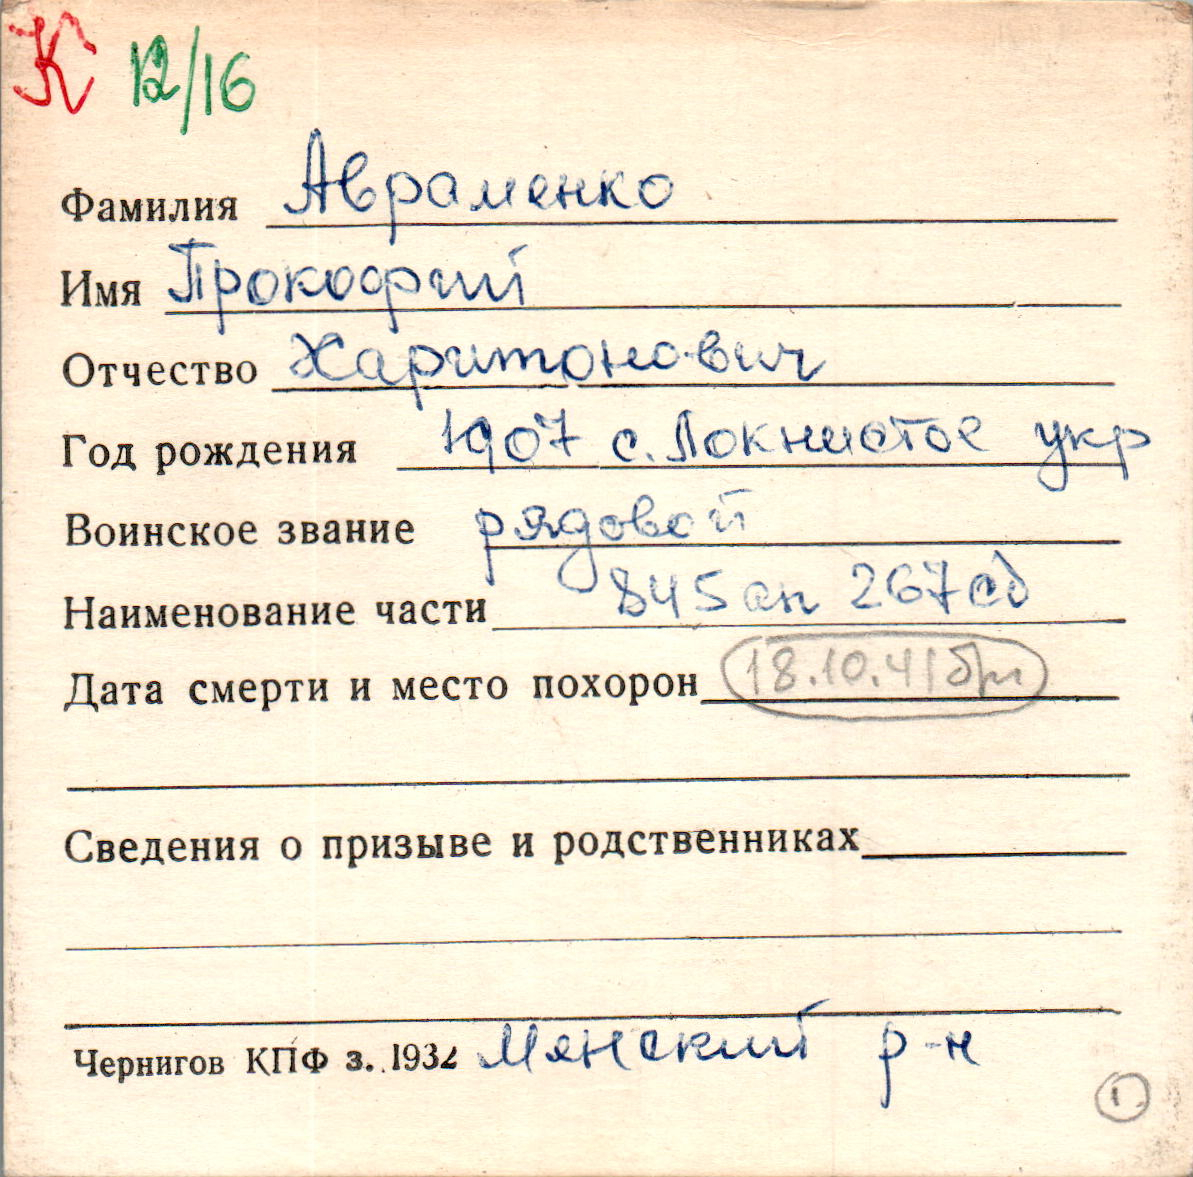 К 12/16
Фамилия Авраменко
Имя Прокофий
Отчество Харитонович
Год рождения 1907 с. Локнистое укр
Воинское звание рядовой
Наименование части 845 ап 267 сд
Дата смерти и место похорон 18.10.41 бги
Сведения о призыве и родственниках
Чернигов КПФ з. 1932 Менский р-н
1.